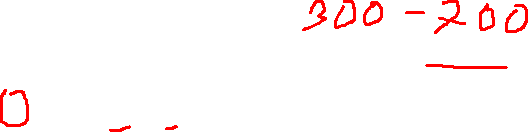 300 - 700
0 - -